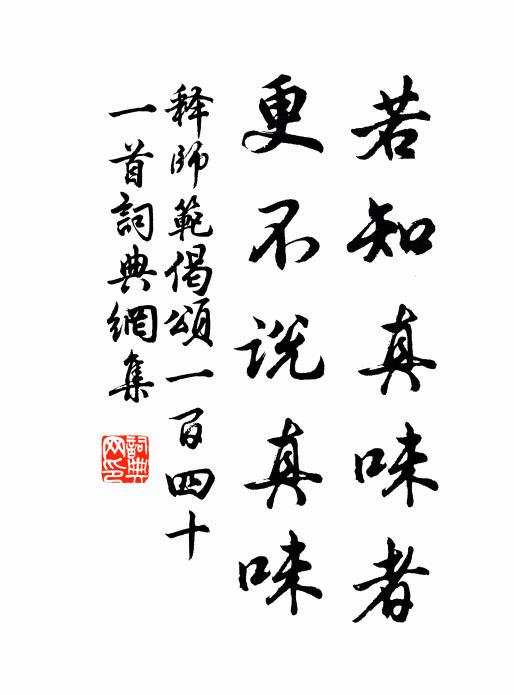 若知真味者
更不说真味
释師範偈頌一百四十
一首詞典網集
詞典网印